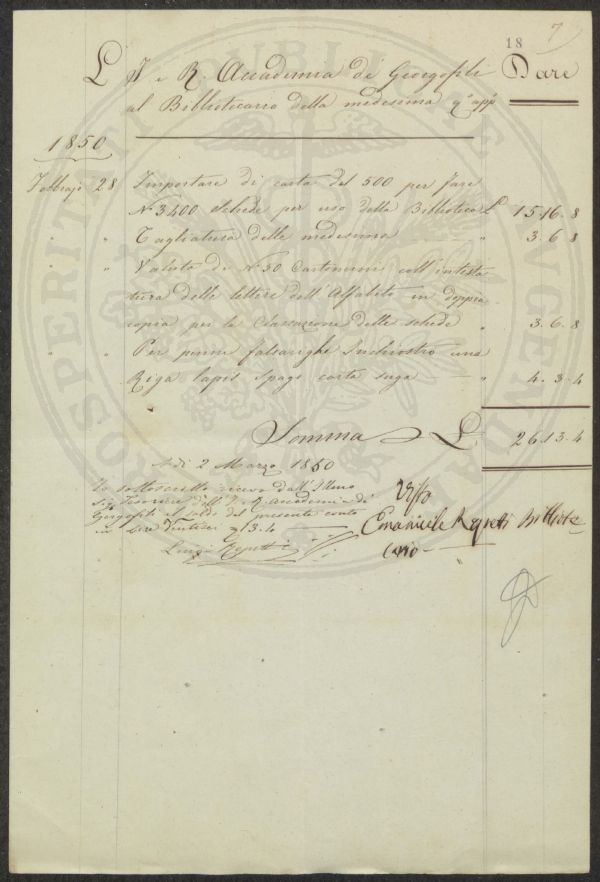 7
18
L' I e R. Accademia de' Georgofili Dare
al Bibliotecario della medesima
1850
Febbrajo 28 Importare di carta del 500 per fare
N° 3400 Schede per uso della Biblioteca £ 15.16.8
" " Tagliatura delle medesime " 3.6.8
" " Valuta di N° 50 Cartoncini coll' intesta
tura delle lettere dell' Alfabeto in doppia
copia per la Classazione delle schede " 3.6.8
" " Per penne falsarighe Inchiostro una
Riga lapis spago carta suga " 4.3.4
Somma £ 26.13.4
A dì 2 Marzo 1850
Io sottoscritto ricevo dall' Illmo
Sig. Tesoriere dell' I. R. Accademia di
Georgofili il saldo del presente conto
in Lire Ventisei 13.4
Luigi Repetti
Visto
Emanuele Repetti Bibliote
cario
PROSPERITATI PUBLICAE AUGENDAE